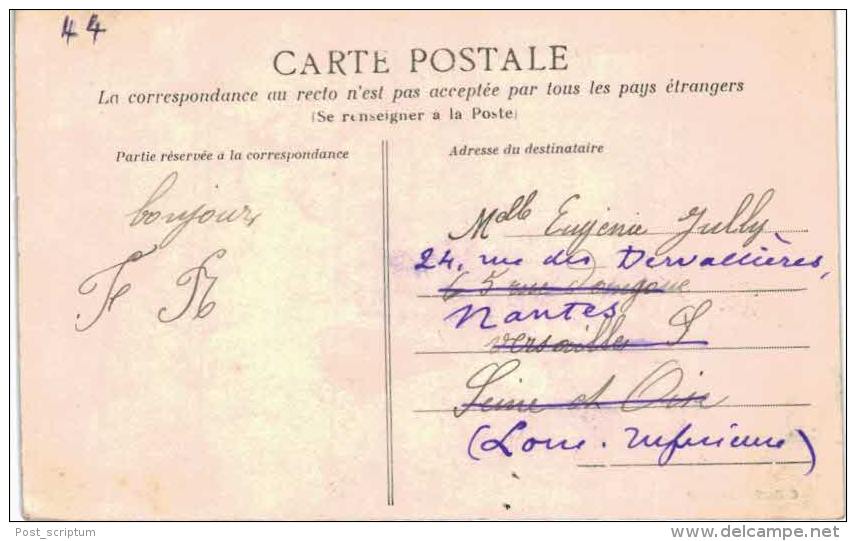 44
CARTE POSTALE
La correspondance au recto n'est pas acceptée par tous les pays étrangers
(Se renseigner a la Poste)
Partie réservée a la correspondance
Adresse du destinataire
bonjour
F R
Melle Eugénie Jully
24, rue des Dervallières,
65 rue
Nantes
Versailles
Seine et Oise
(Loire-Inférieure)
Post_scriptum
www.delcampe.net